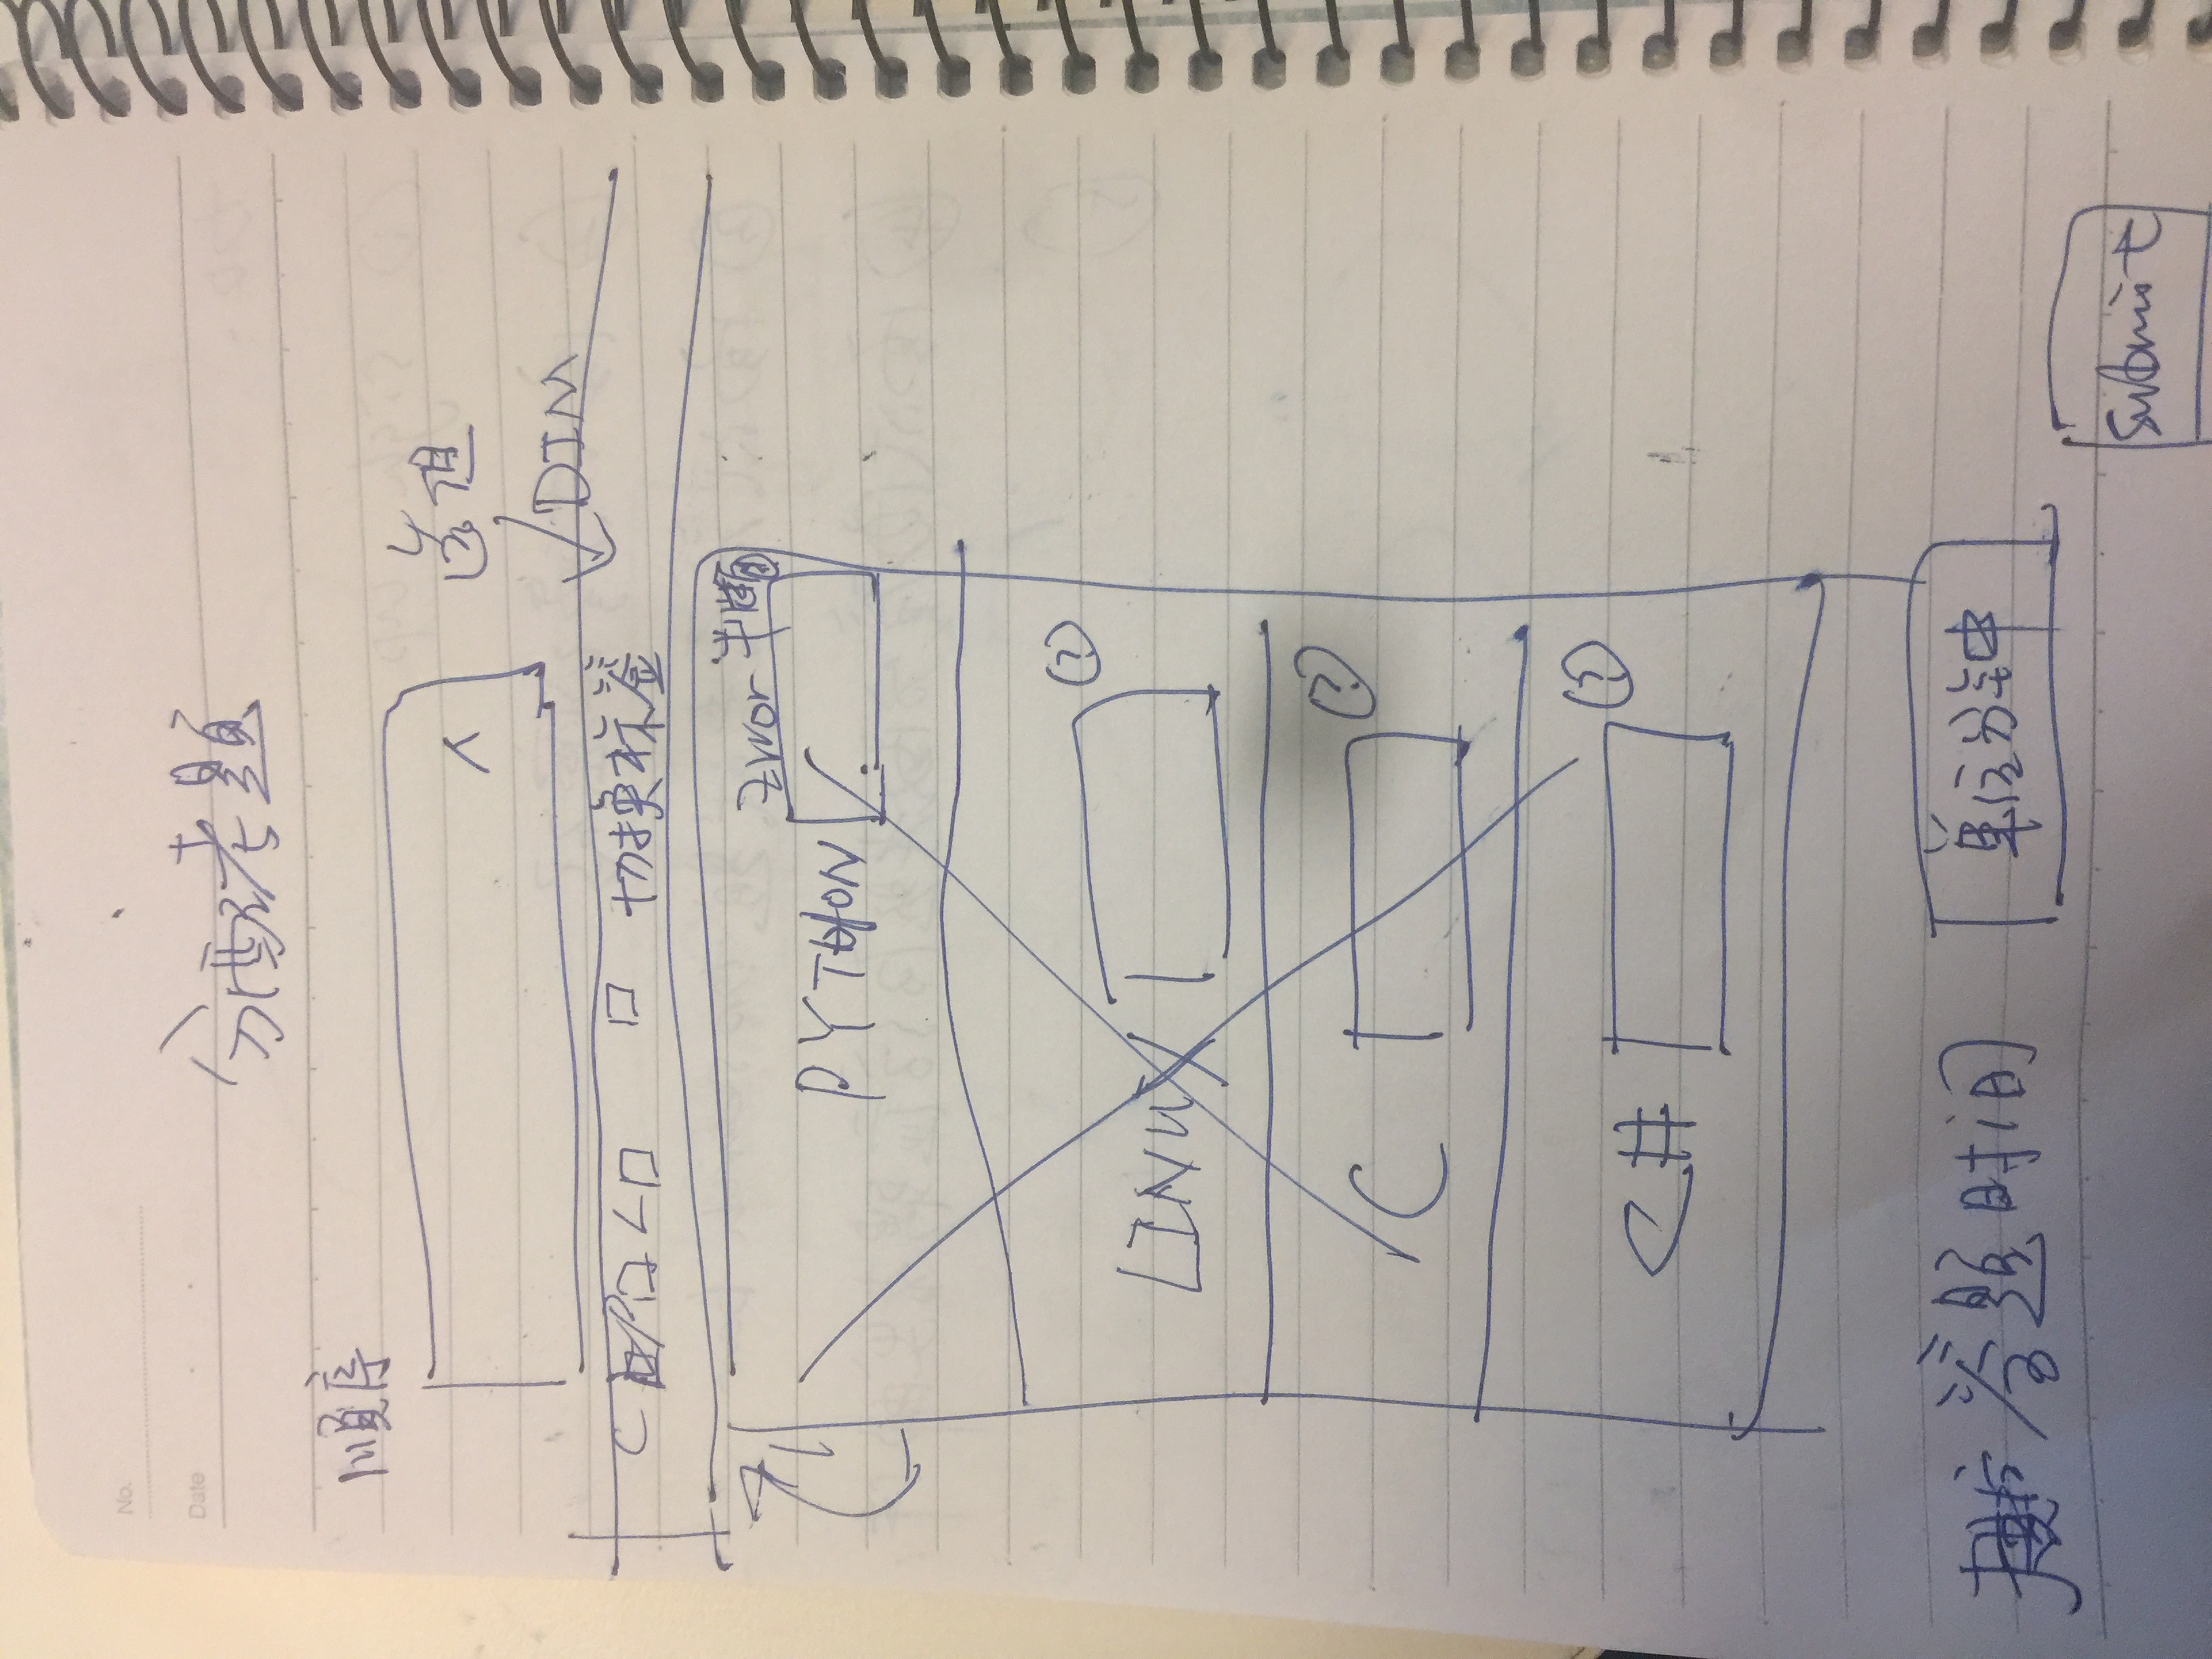 No.
Date
分配考题
順序
人
DIM
C P L 切换标签
Error 判断
PYTHON
?
LINUX
?
C
?
C#
答题时间 单位分钟
submit